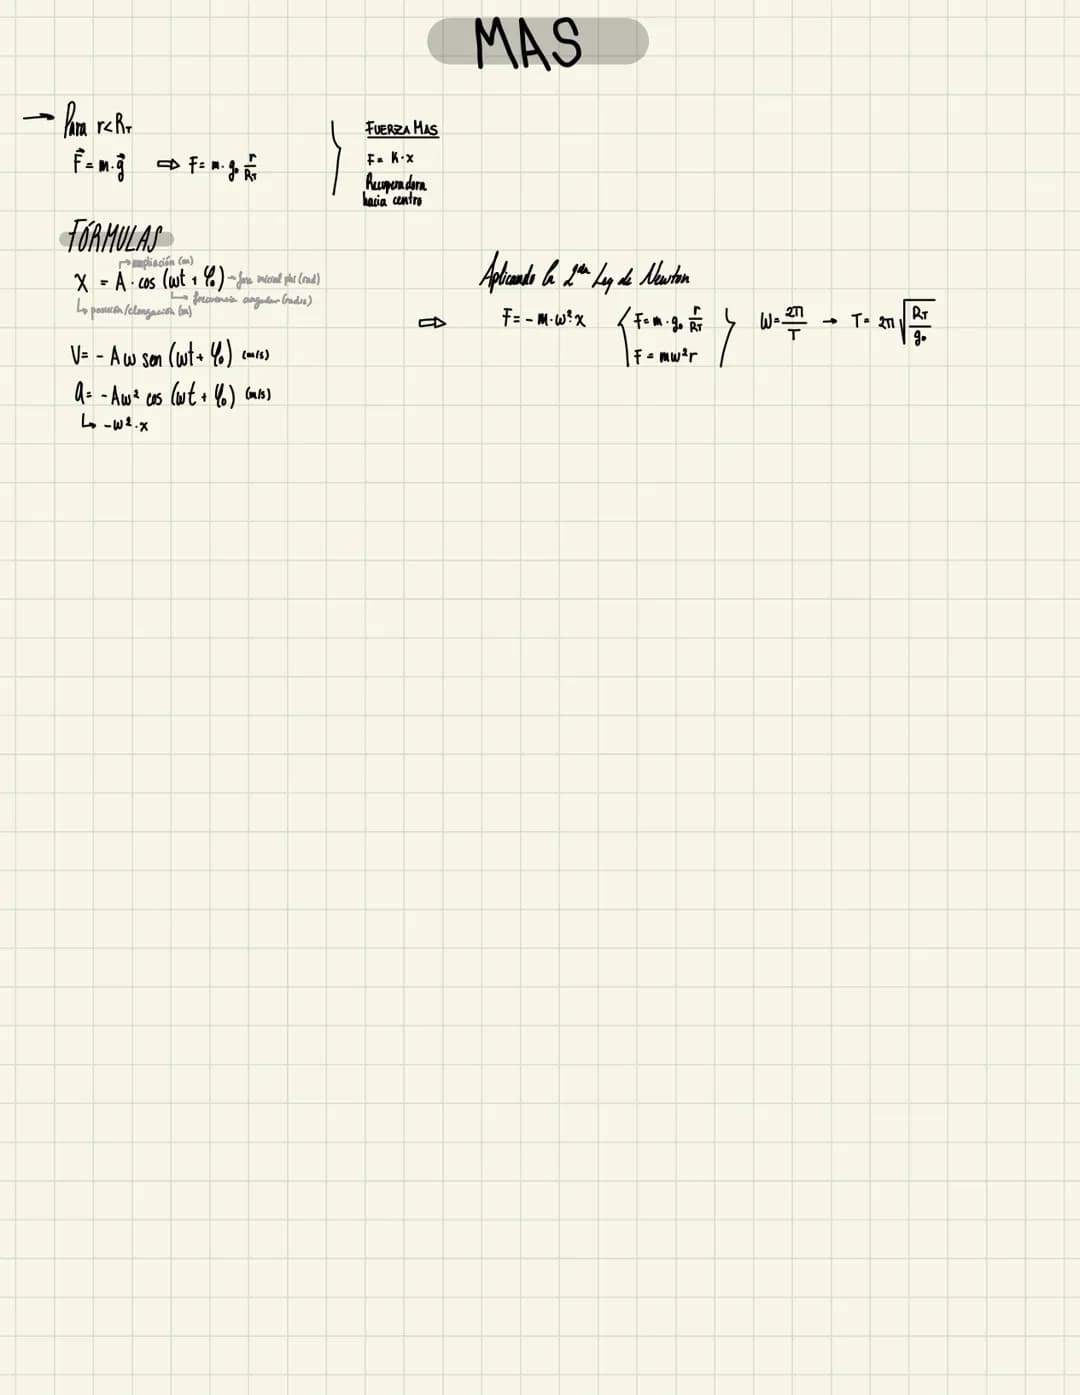 MAS
→ Para r<R_T
F⃗ = m·g⃗ ⇒ F = m·g₀ r/R_T
FUERZA MAS
F = K·x
Recuperadora
hacia centro
FÓRMULAS
→ ampliación (m)
X = A·cos (ωt + φ₀) → fase inicial phi (rad)
↳ frecuencia angular (rad/s)
↳ posición/elongación (m)
V = - Aω sen (ωt + φ₀) (m/s)
a = - Aω² cos (ωt + φ₀) (m/s)
↳ -ω²·x
Aplicando la 2da Ley de Newton
⇒ F = - m·ω²·x
F = m·g₀ r/R_T
F = mω²r
ω = 2π/T → T = 2π √(R_T/g₀)